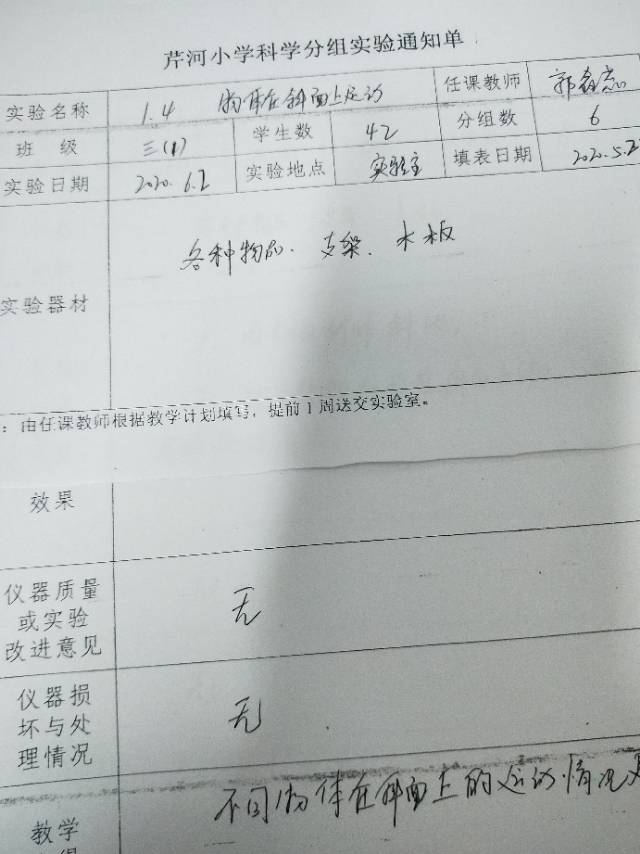 芹河小学科学分组实验通知单
实验名称 1.4 物体在斜面上运动 任课教师 郭
班 级 三(1) 学生数 42 分组数 6
实验日期 2020.6.2 实验地点 实验室 填表日期 2020.5.2
实验器材 各种物品、支架、木板
:由任课教师根据教学计划填写,提前1周送交实验室。
效果
仪器质量
或实验 无
改进意见
仪器损
坏与处 无
理情况
不同物体在斜面上的运动情况
教学